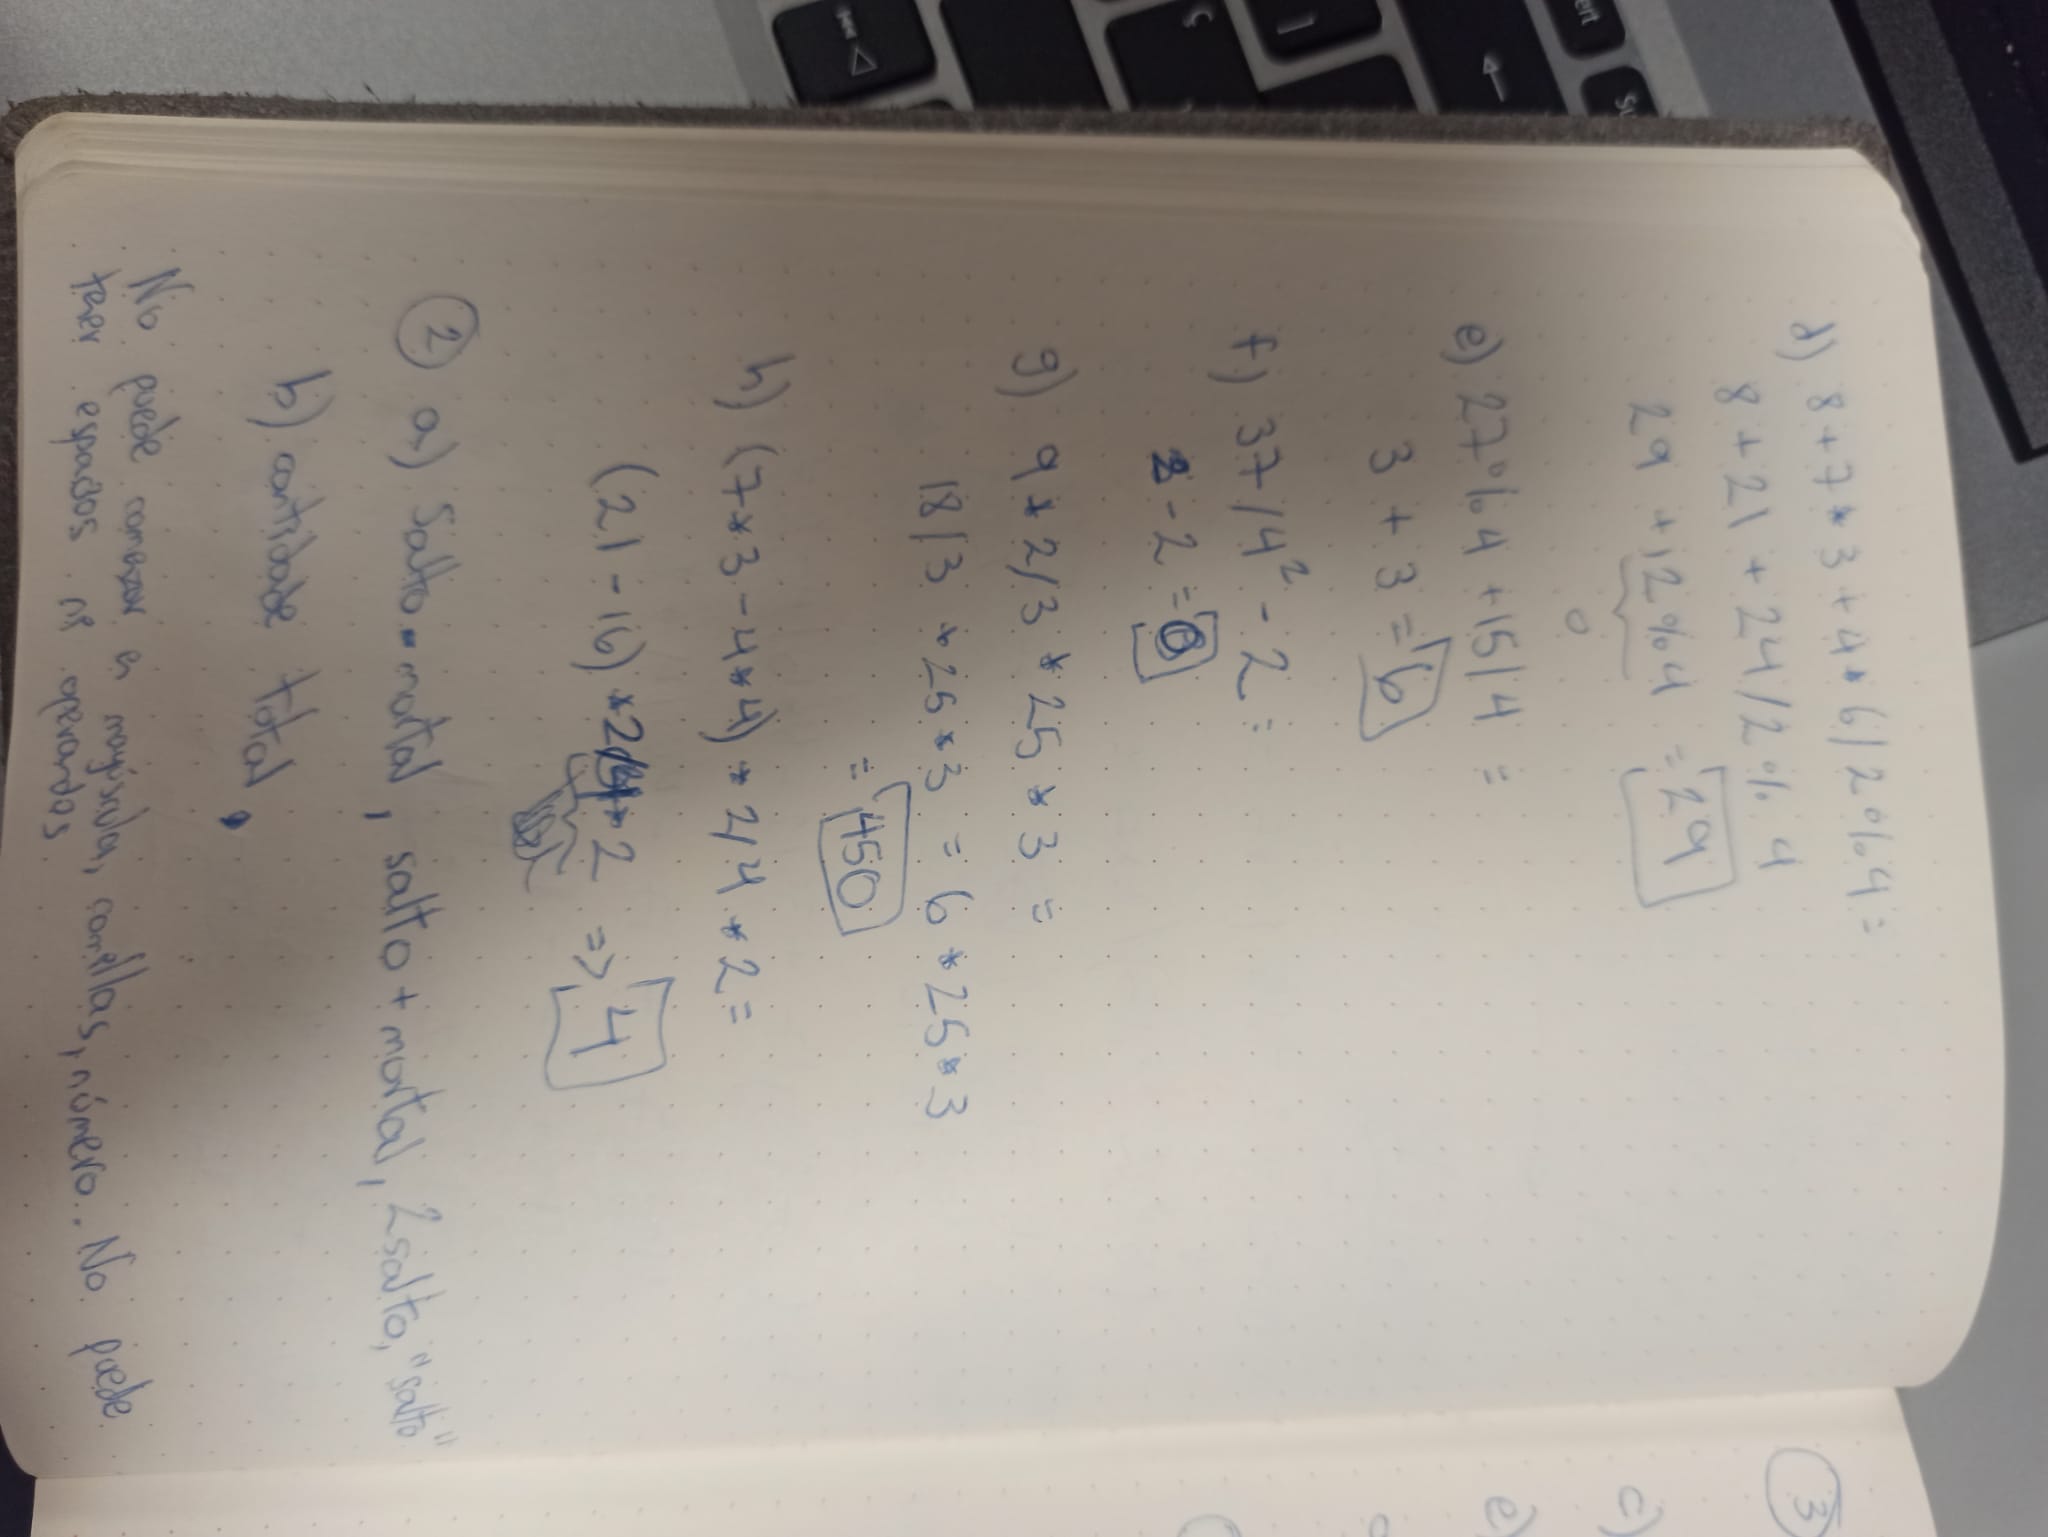 d) 8+7*3+4*6/2%4=
8+21+24/2%4
29+12%4 = 29
0
e) 27%4+15/4 =
3+3=6
f) 37/4² - 2=
2-2=0
g) 9*2/3*25*3 =
18/3*25*3 = 6*25*3
= 450
h) (7*3-4*4)*2/4*2=
(21-16)*2 *2 => 4
② a) Salto-mortal, salto+mortal, 2salto, "salto"
b) cantidade total,
No puede comenzar en mayúscula, comillas, número.. No puede
tener espacios ni operandos
③
c)
e)